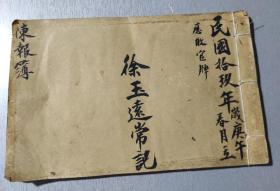 民國拾玖年歲庚午春月立
徐玉遠常記
陳報簿